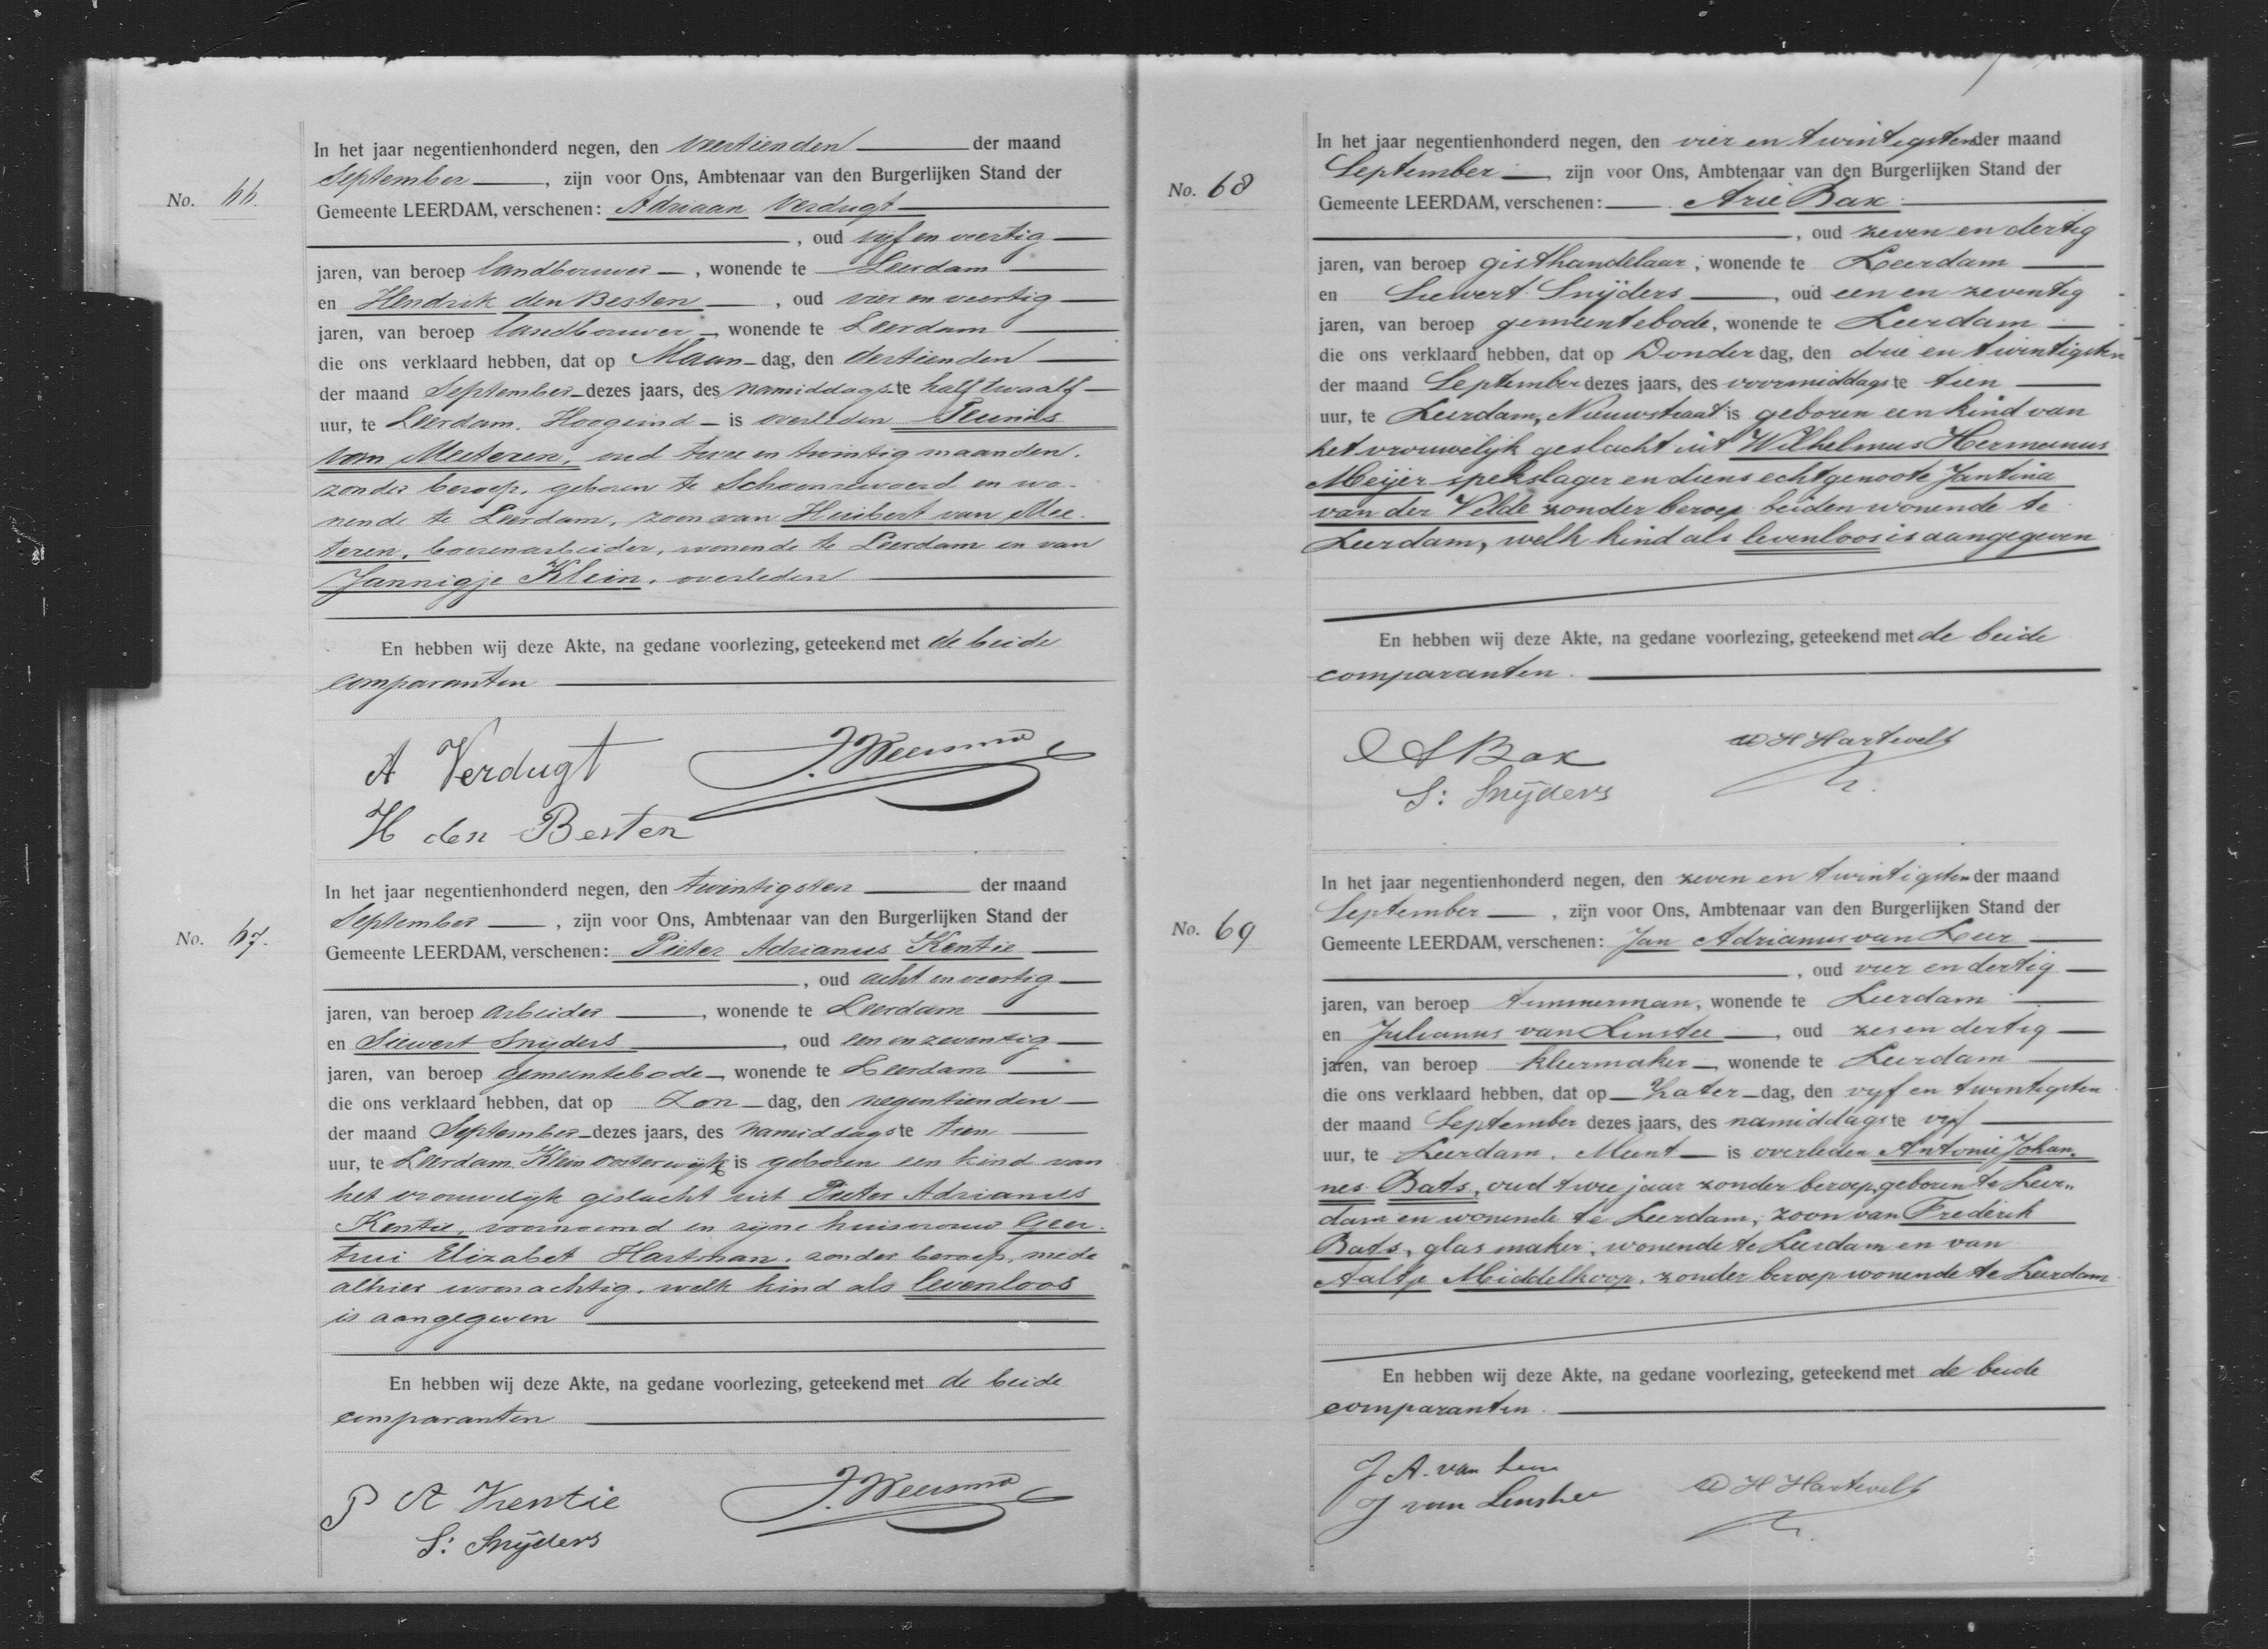 No. 66.
In het jaar negentienhonderd negen, den veertienden der maand
September, zijn voor Ons, Ambtenaar van den Burgerlijken Stand der
Gemeente LEERDAM, verschenen: Adriaan Verdugt
, oud vijf en veertig
jaren, van beroep landbouwer, wonende te Leerdam
en Hendrik den Besten, oud vier en veertig
jaren, van beroep landbouwer, wonende te Leerdam
die ons verklaard hebben, dat op Maan-dag, den dertienden
der maand September dezes jaars, des namiddags te half twaalf
uur, te Leerdam, Hoogeind is overleden Teunis
van Meeteren, oud twee en twintig maanden,
zonder beroep, geboren te Schoonrewoerd en wo-
nende te Leerdam, zoon van Huibert van Mee-
teren, boerenarbeider, wonende te Leerdam en van
Jannigje Klein, overleden
En hebben wij deze Akte, na gedane voorlezing, geteekend met de beide
comparanten
A Verdugt J. Weersma
H den Besten
No. 67.
In het jaar negentienhonderd negen, den twintigsten der maand
September, zijn voor Ons, Ambtenaar van den Burgerlijken Stand der
Gemeente LEERDAM, verschenen: Pieter Adrianus Kentie
, oud acht en veertig
jaren, van beroep arbeider, wonende te Leerdam
en Siewert Snijders, oud een en zeventig
jaren, van beroep gemeentebode, wonende te Leerdam
die ons verklaard hebben, dat op Zon-dag, den negentienden
der maand September dezes jaars, des namiddags te tien
uur, te Leerdam, Klein Oosterwijk is geboren een kind van
het vrouwelijk geslacht uit Pieter Adrianus
Kentie, voornoemd en zijne huisvrouw Geer-
trui Elizabet Hartman, zonder beroep, mede
alhier woonachtig, welk kind als levenloos
is aangegeven
En hebben wij deze Akte, na gedane voorlezing, geteekend met de beide
comparanten
P A Kentie J. Weersma
S: Snijders
No. 68
In het jaar negentienhonderd negen, den vier en twintigsten der maand
September, zijn voor Ons, Ambtenaar van den Burgerlijken Stand der
Gemeente LEERDAM, verschenen: Arie Bax
, oud zeven en dertig
jaren, van beroep gisthandelaar, wonende te Leerdam
en Siewert Snijders, oud een en zeventig
jaren, van beroep gemeentebode, wonende te Leerdam
die ons verklaard hebben, dat op Donderdag, den drie en twintigsten
der maand September dezes jaars, des voormiddags te tien
uur, te Leerdam, Nieuwstraat is geboren een kind van
het vrouwelijk geslacht uit Wilhelmus Hermanus
Meijer spekslager en diens echtgenoote Jantina
van der Velde zonder beroep beiden wonende te
Leerdam, welk kind als levenloos is aangegeven
En hebben wij deze Akte, na gedane voorlezing, geteekend met de beide
comparanten.
A Bax W H Hartevelt
S: Snijders
No. 69
In het jaar negentienhonderd negen, den zeven en twintigsten der maand
September, zijn voor Ons, Ambtenaar van den Burgerlijken Stand der
Gemeente LEERDAM, verschenen: Jan Adrianus van Leer
, oud vier en dertig
jaren, van beroep timmerman, wonende te Leerdam
en Julianus van Linstee, oud zes en dertig
jaren, van beroep kleermaker, wonende te Leerdam
die ons verklaard hebben, dat op Zater-dag, den vijf en twintigsten
der maand September dezes jaars, des namiddags te vijf
uur, te Leerdam, Meent is overleden Antonie Johan-
nes Bats, oud twee jaar zonder beroep, geboren te Leer-
dam en wonende te Leerdam, zoon van Frederik
Bats, glasmaker, wonende te Leerdam en van
Aaltje Middelkoop, zonder beroep wonende te Leerdam
En hebben wij deze Akte, na gedane voorlezing, geteekend met de beide
comparanten.
J A. van Leer
J van Linstee W H Hartevelt